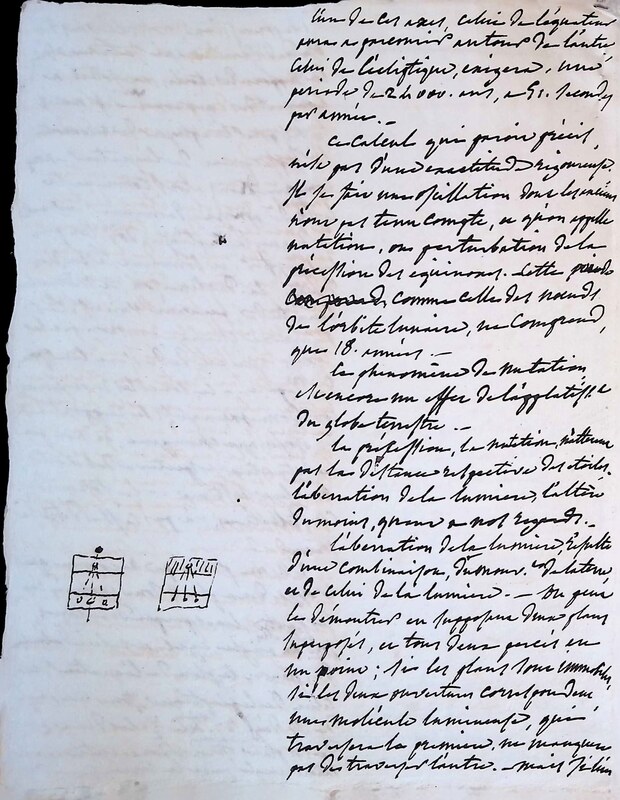 l'un de ces axes, celui de l'équateur
aura a parcourir autour de l'autre
celui de l'écliptique, exigera, une
période de 2 000. ans, a 51. secondes
par année. -
ce calcul qui paroit précis,
n'est pas d'une exactitude rigoureuse.
Il se fait une oscillation dont les anciens
n'ont pas tenu compte, et qu'on appelle
nutation, ou perturbation de la
précession des équinoxes. Cette période
comme celle des nœuds
de l'orbite lunaire, ne comprend,
que 18. années. -
le phénomène de nutation
est encore un effet de l'applatiss.t
du globe terrestre. -
la précession, la nutation, n'altèrent
pas la distance respective des étoiles.
l'aberration de la lumiere, l'altère
du moins, quant a nos regards. -
l'aberration de la lumiere, résulte
d'une combinaison, du mouv.t de la terre
et de celui de la lumiere. - On peut
le démontrer en supposant deux plans
superposés, et tous deux percés en
un point ; si les plans sont immobiles
si les deux ouvertures correspondent
une molécule lumineuse, qui
traversera la premiere, ne manquera
pas de traverser l'autre. - mais si l'un